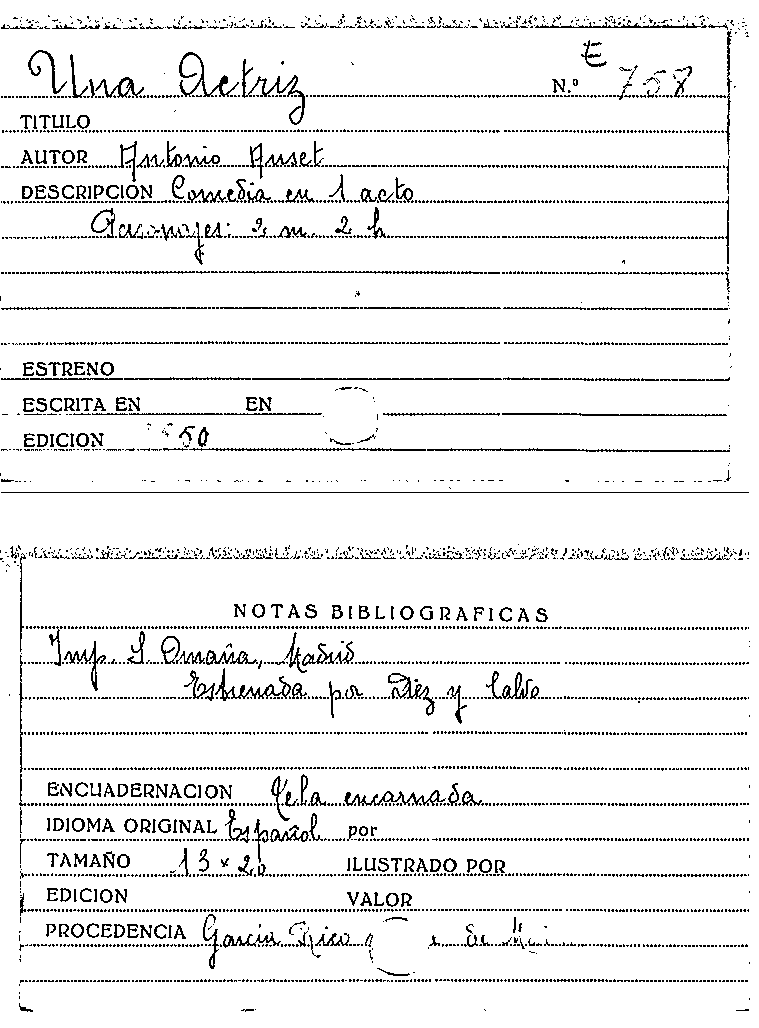 Una Actriz
E
N.º 758
TITULO
AUTOR Antonio Auset
DESCRIPCIÓN Comedia en 1 acto
Personajes: 2 m. 2 h
ESTRENO
ESCRITA EN EN
EDICION 50
NOTAS BIBLIOGRAFICAS
Imp. S. Omaña, Madrid
Estrenada por Diez y Calvo
ENCUADERNACION Tela encarnada
IDIOMA ORIGINAL Español por
TAMAÑO 13 x 20 ILUSTRADO POR
EDICION VALOR
PROCEDENCIA García Rico de